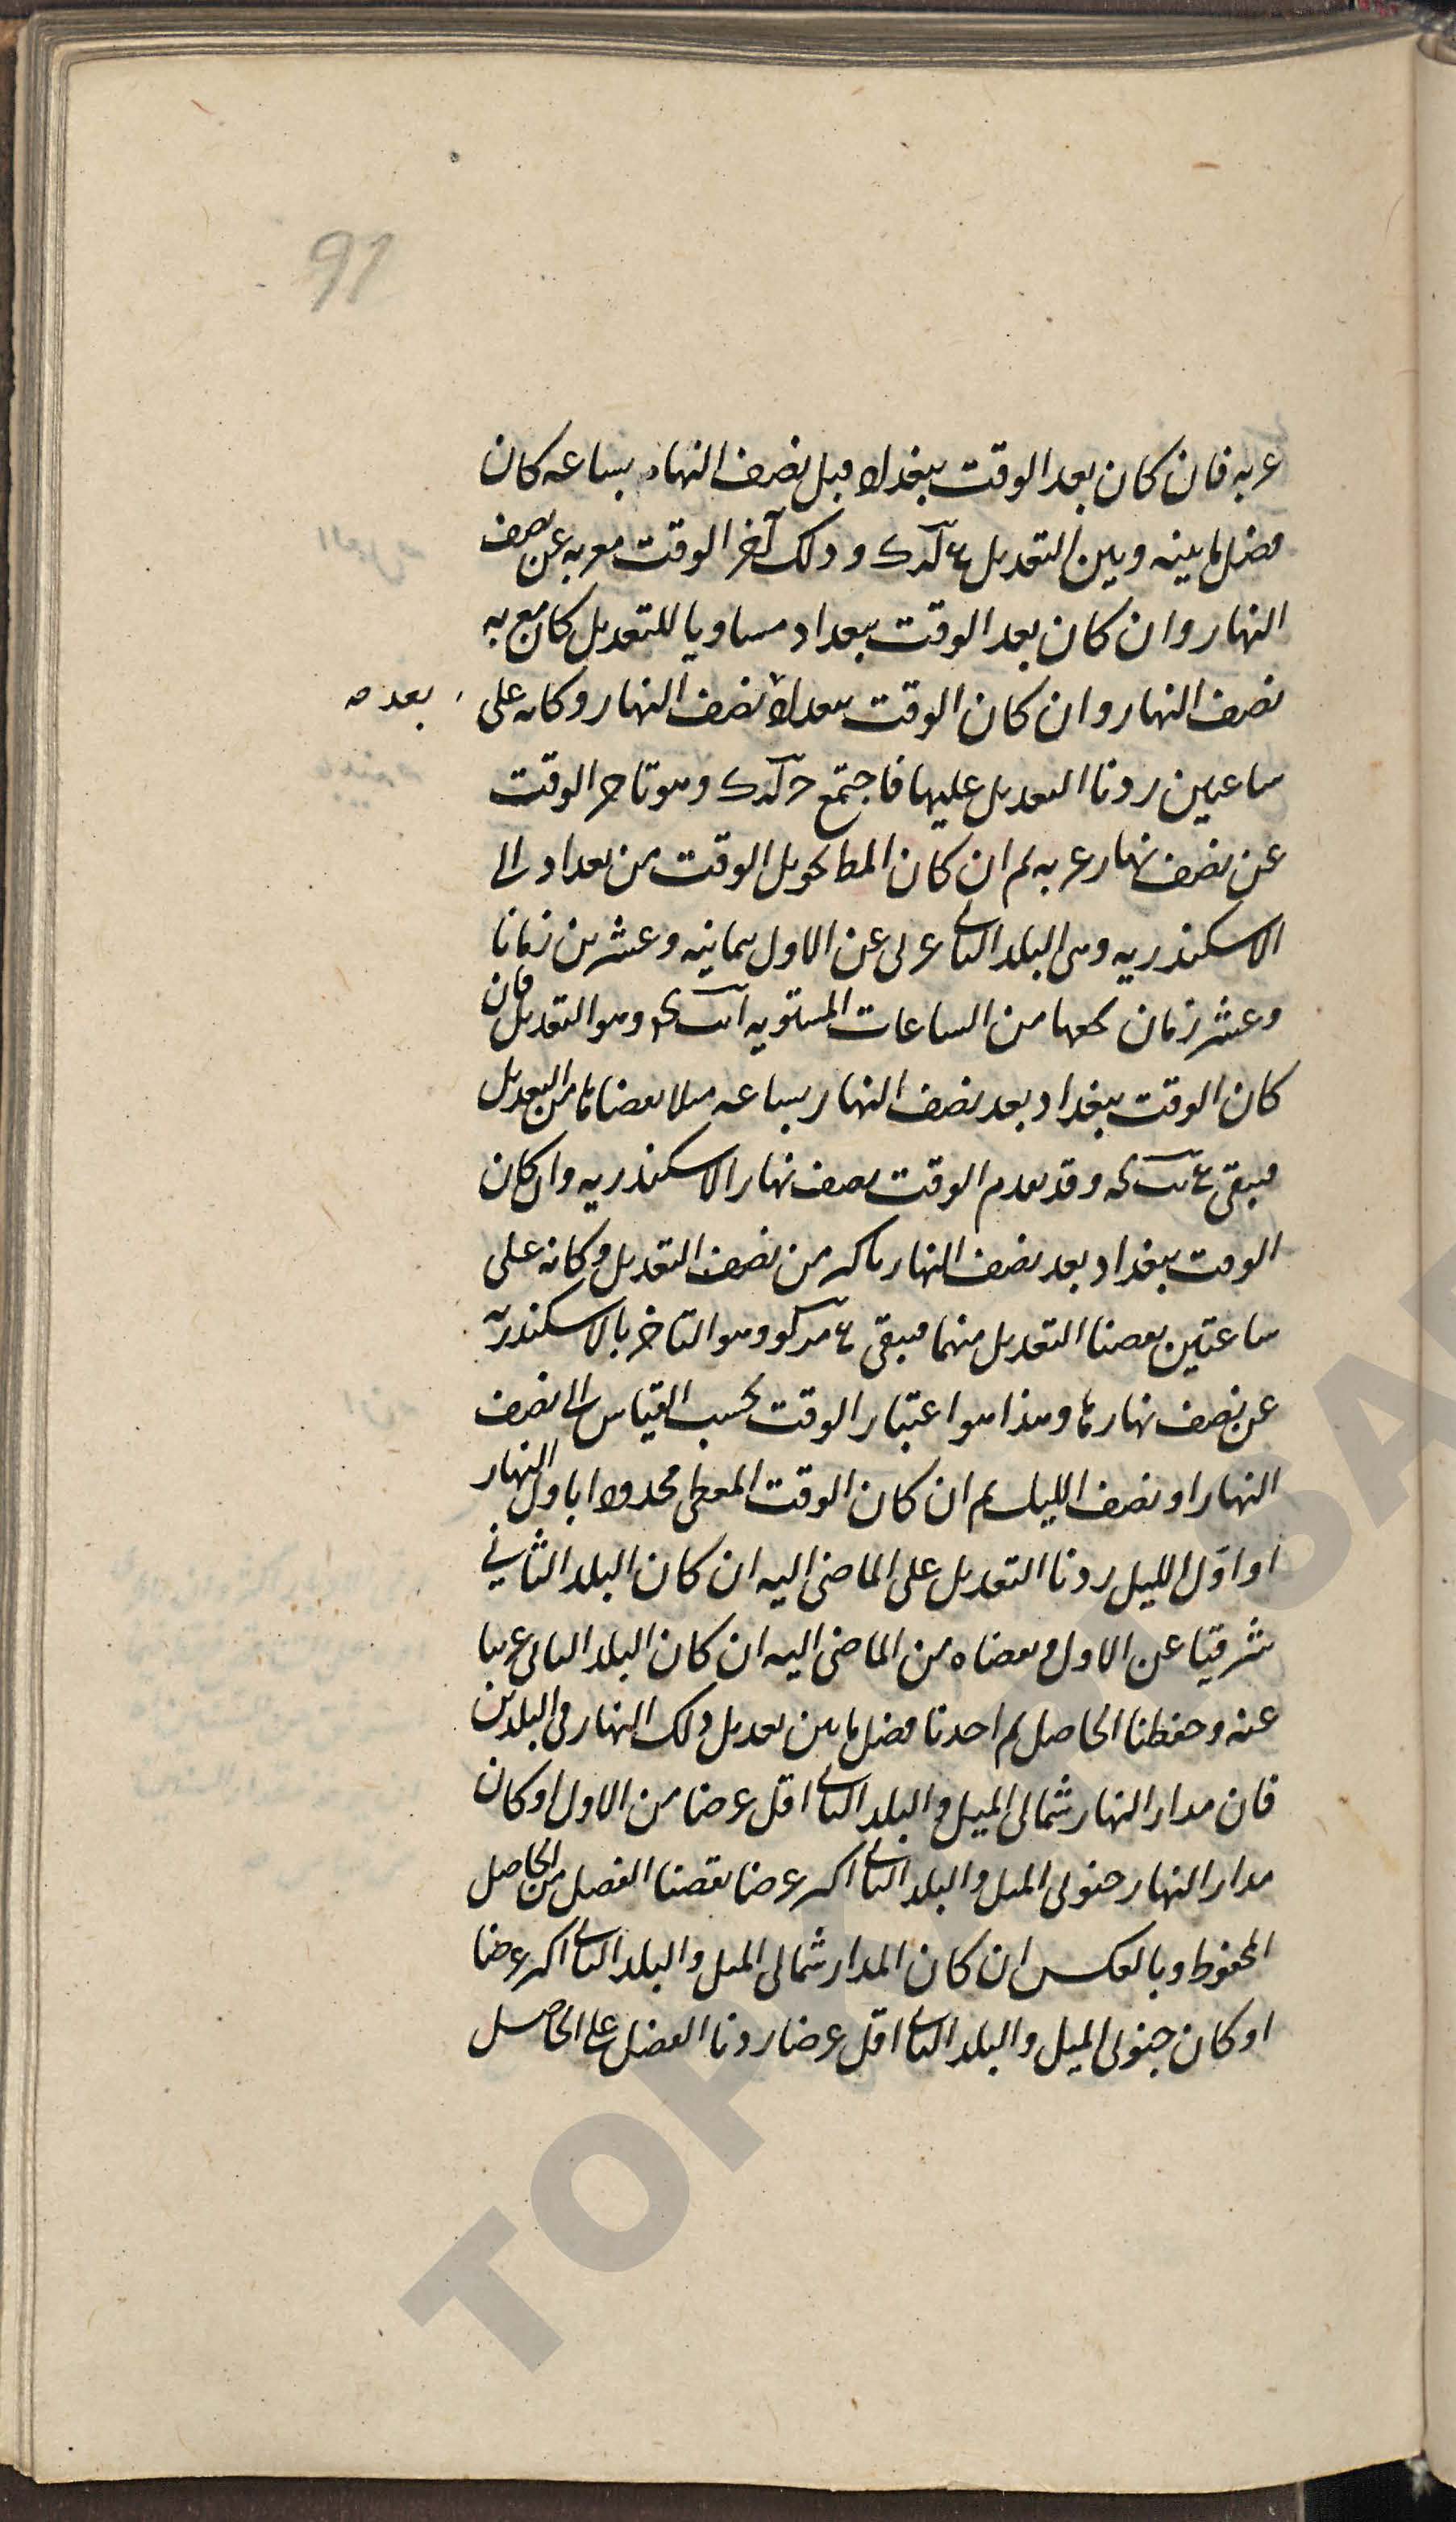 91
غربه فان كان بعد الوقت ببغداد قبل نصف النهار بساعه كان
فضل ما بينه وبين التعديل وذلك آخر الوقت عن نصف
النهار وان كان بعد الوقت ببغداد مساويا للتعديل كان مع به
نصف النهار وان كان الوقت ببغداد نصف النهار وكانه على
بعد صه
ساعتين زدنا التعديل عليها فاجتمع وهو تاخر الوقت
عن نصف نهار غربه ثم ان كان المط تحويل الوقت من بغداد الى
الاسكندريه وهى البلد الثانى غربى عن الاول بثمانيه وعشرين زمانا
وعشر زمان من الساعات المستويه وهو التعديل فان
كان الوقت ببغداد بعد نصف النهار بساعه مثلا نقصناها من التعديل
فبقى وقد تقدم الوقت نصف نهار الاسكندريه وان كان
الوقت ببغداد بعد نصف النهار باكثر من نصف التعديل وكانه على
ساعتين نقصنا التعديل منهما فبقى وهو التاخر بالاسكندرية
عن نصف نهارها وهذا هو اعتبار الوقت بحسب القياس الى نصف
النهار او نصف الليل ثم ان كان الوقت المعطى محدودا باول النهار
او اوّل الليل زدنا التعديل على الماضى اليه ان كان البلد الثاني
شرقيا عن الاول ونقصناه من الماضى اليه ان كان البلد الثانى غربيا
عنه وحفظنا الحاصل ثم اخذنا فضل ما بين تعديل ذلك النهار فى البلدين
فان مدار النهار شمالى الميل والبلد الثانى اقل عرضا من الاول او كان
مدار النهار جنوبى الميل والبلد الثانى اكثر عرضا نقصنا الفضل من الحاصل
المحفوظ وبالعكس ان كان المدار شمالى الميل والبلد الثانى اكثر عرضا
او كان جنوبى الميل والبلد الثانى اقل عرضا زدنا الفضل على الحاصل